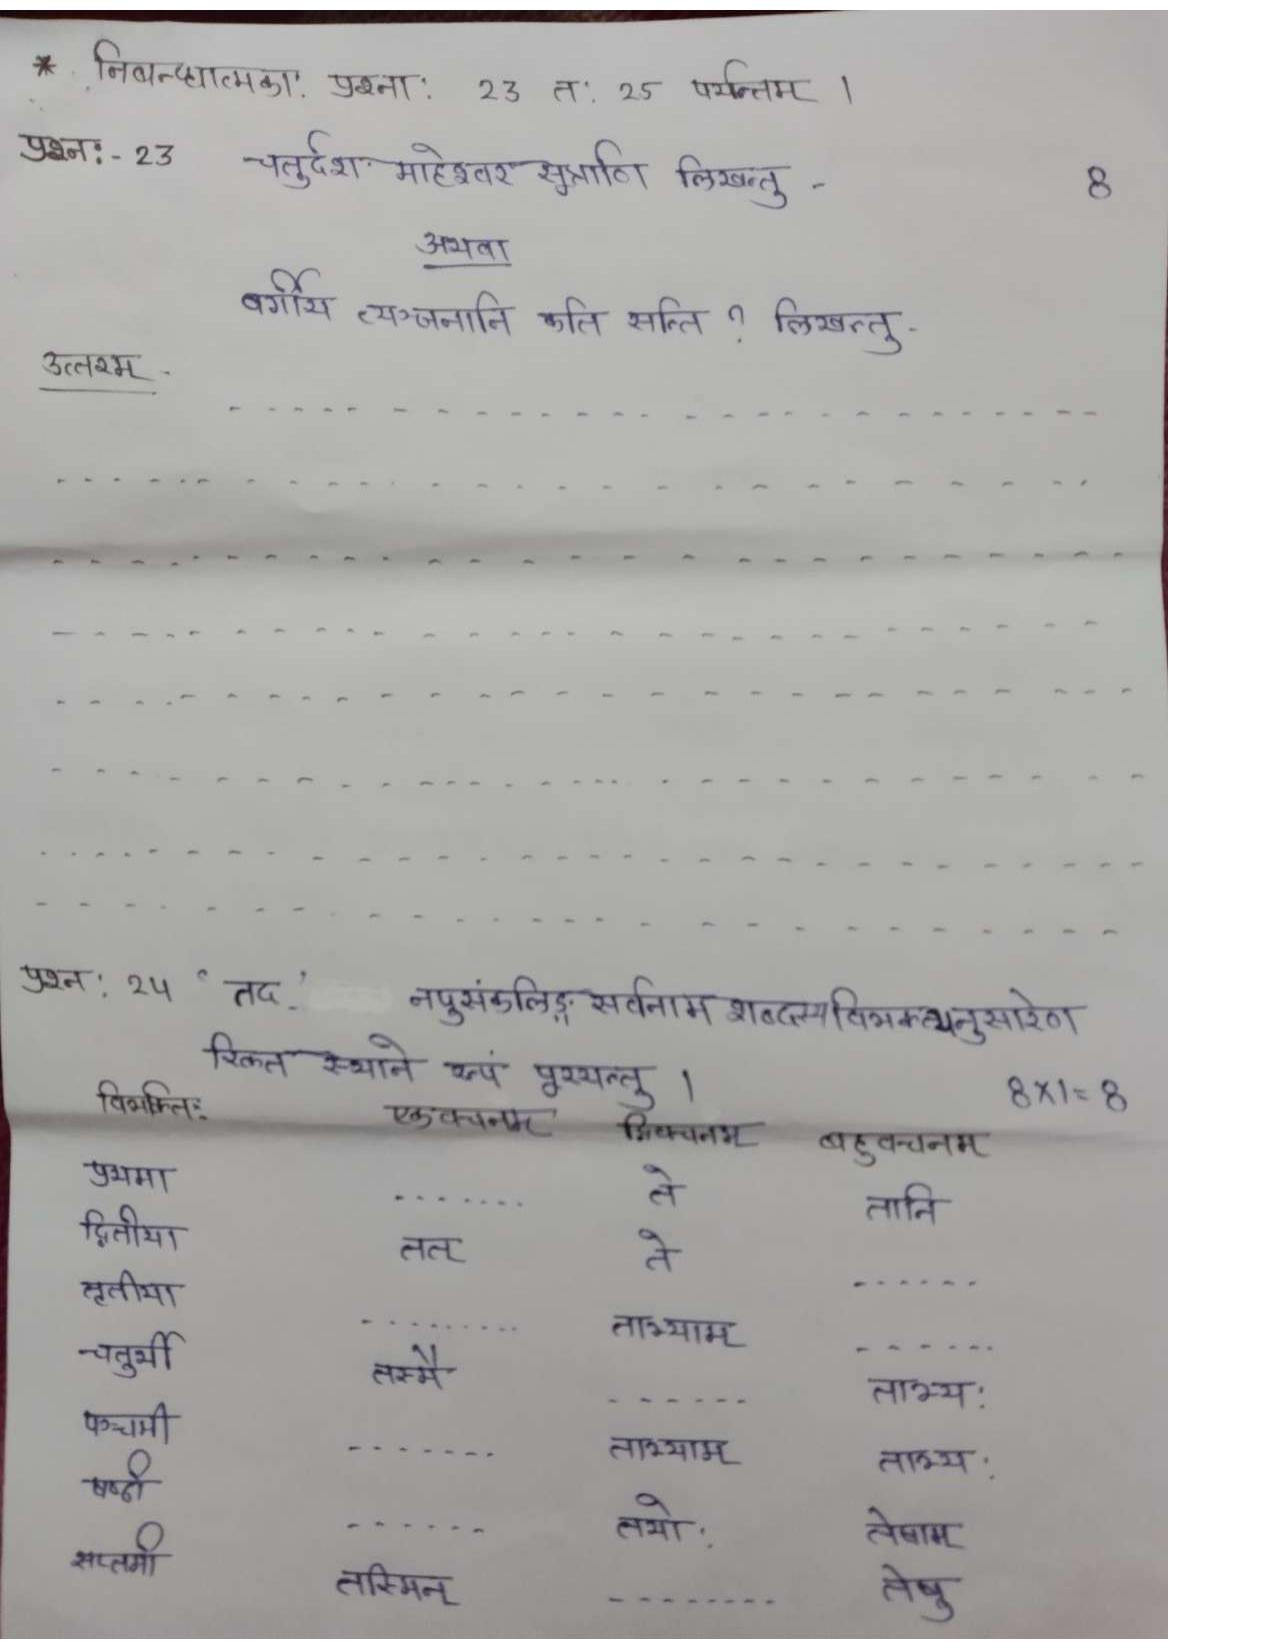 * निबन्धात्मका: प्रश्ना: 23 त: 25 पर्यन्तम् ।
प्रश्न:- 23 चतुर्दश माहेश्वर सूत्राणि लिखन्तु - 8
अथवा
वर्गीय व्यञ्जनानि कति सन्ति ? लिखन्तु -
उत्तरम् -
प्रश्न: 24 'तद्' नपुसंकलिङ्ग सर्वनाम शब्दस्य विभक्त्यनुसारेण
रिक्त स्थाने रूपं पूरयन्तु । 8×1=8
विभक्ति: एकवचनम् द्विवचनम् बहुवचनम्
प्रथमा ....... ते तानि
द्वितीया तत् ते ......
तृतीया ......... ताभ्याम् ......
चतुर्थी तस्मै ...... ताभ्य:
पञ्चमी ....... ताभ्याम् ताभ्य:
षष्ठी ...... तयो: तेषाम्
सप्तमी तस्मिन् ........ तेषु